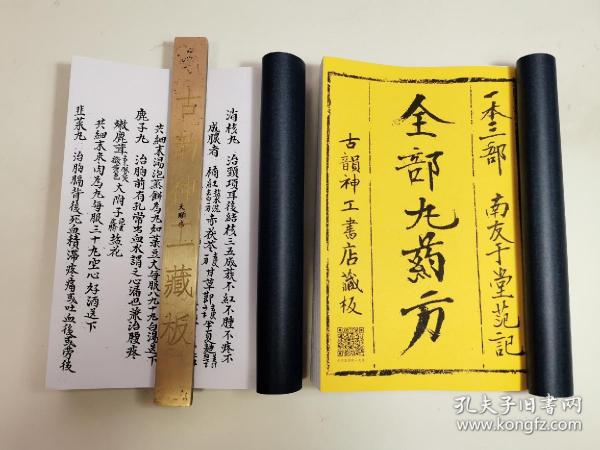 一本三部 南友于堂范記
全部丸药方
古韻神工書店藏板
消核丸 治頸項耳後結核三五成簇不紅不腫不疼不
成膿者 橘紅 赤茯苓 甘草
共細末湯泡蒸餅為丸如菉豆大每服八九十丸白湯送下
鹿子丸 治胸前有孔常出血水謂之心漏也兼治腰疼
嫩鹿茸 大附子 鹽花
共細末枣肉為丸每服三十丸空心好酒送下
韭菜丸 治胸膈背後死血積滯疼痛或吐血後或勞後
古韵神工藏板
孔夫子旧书网
www.kongfz.com